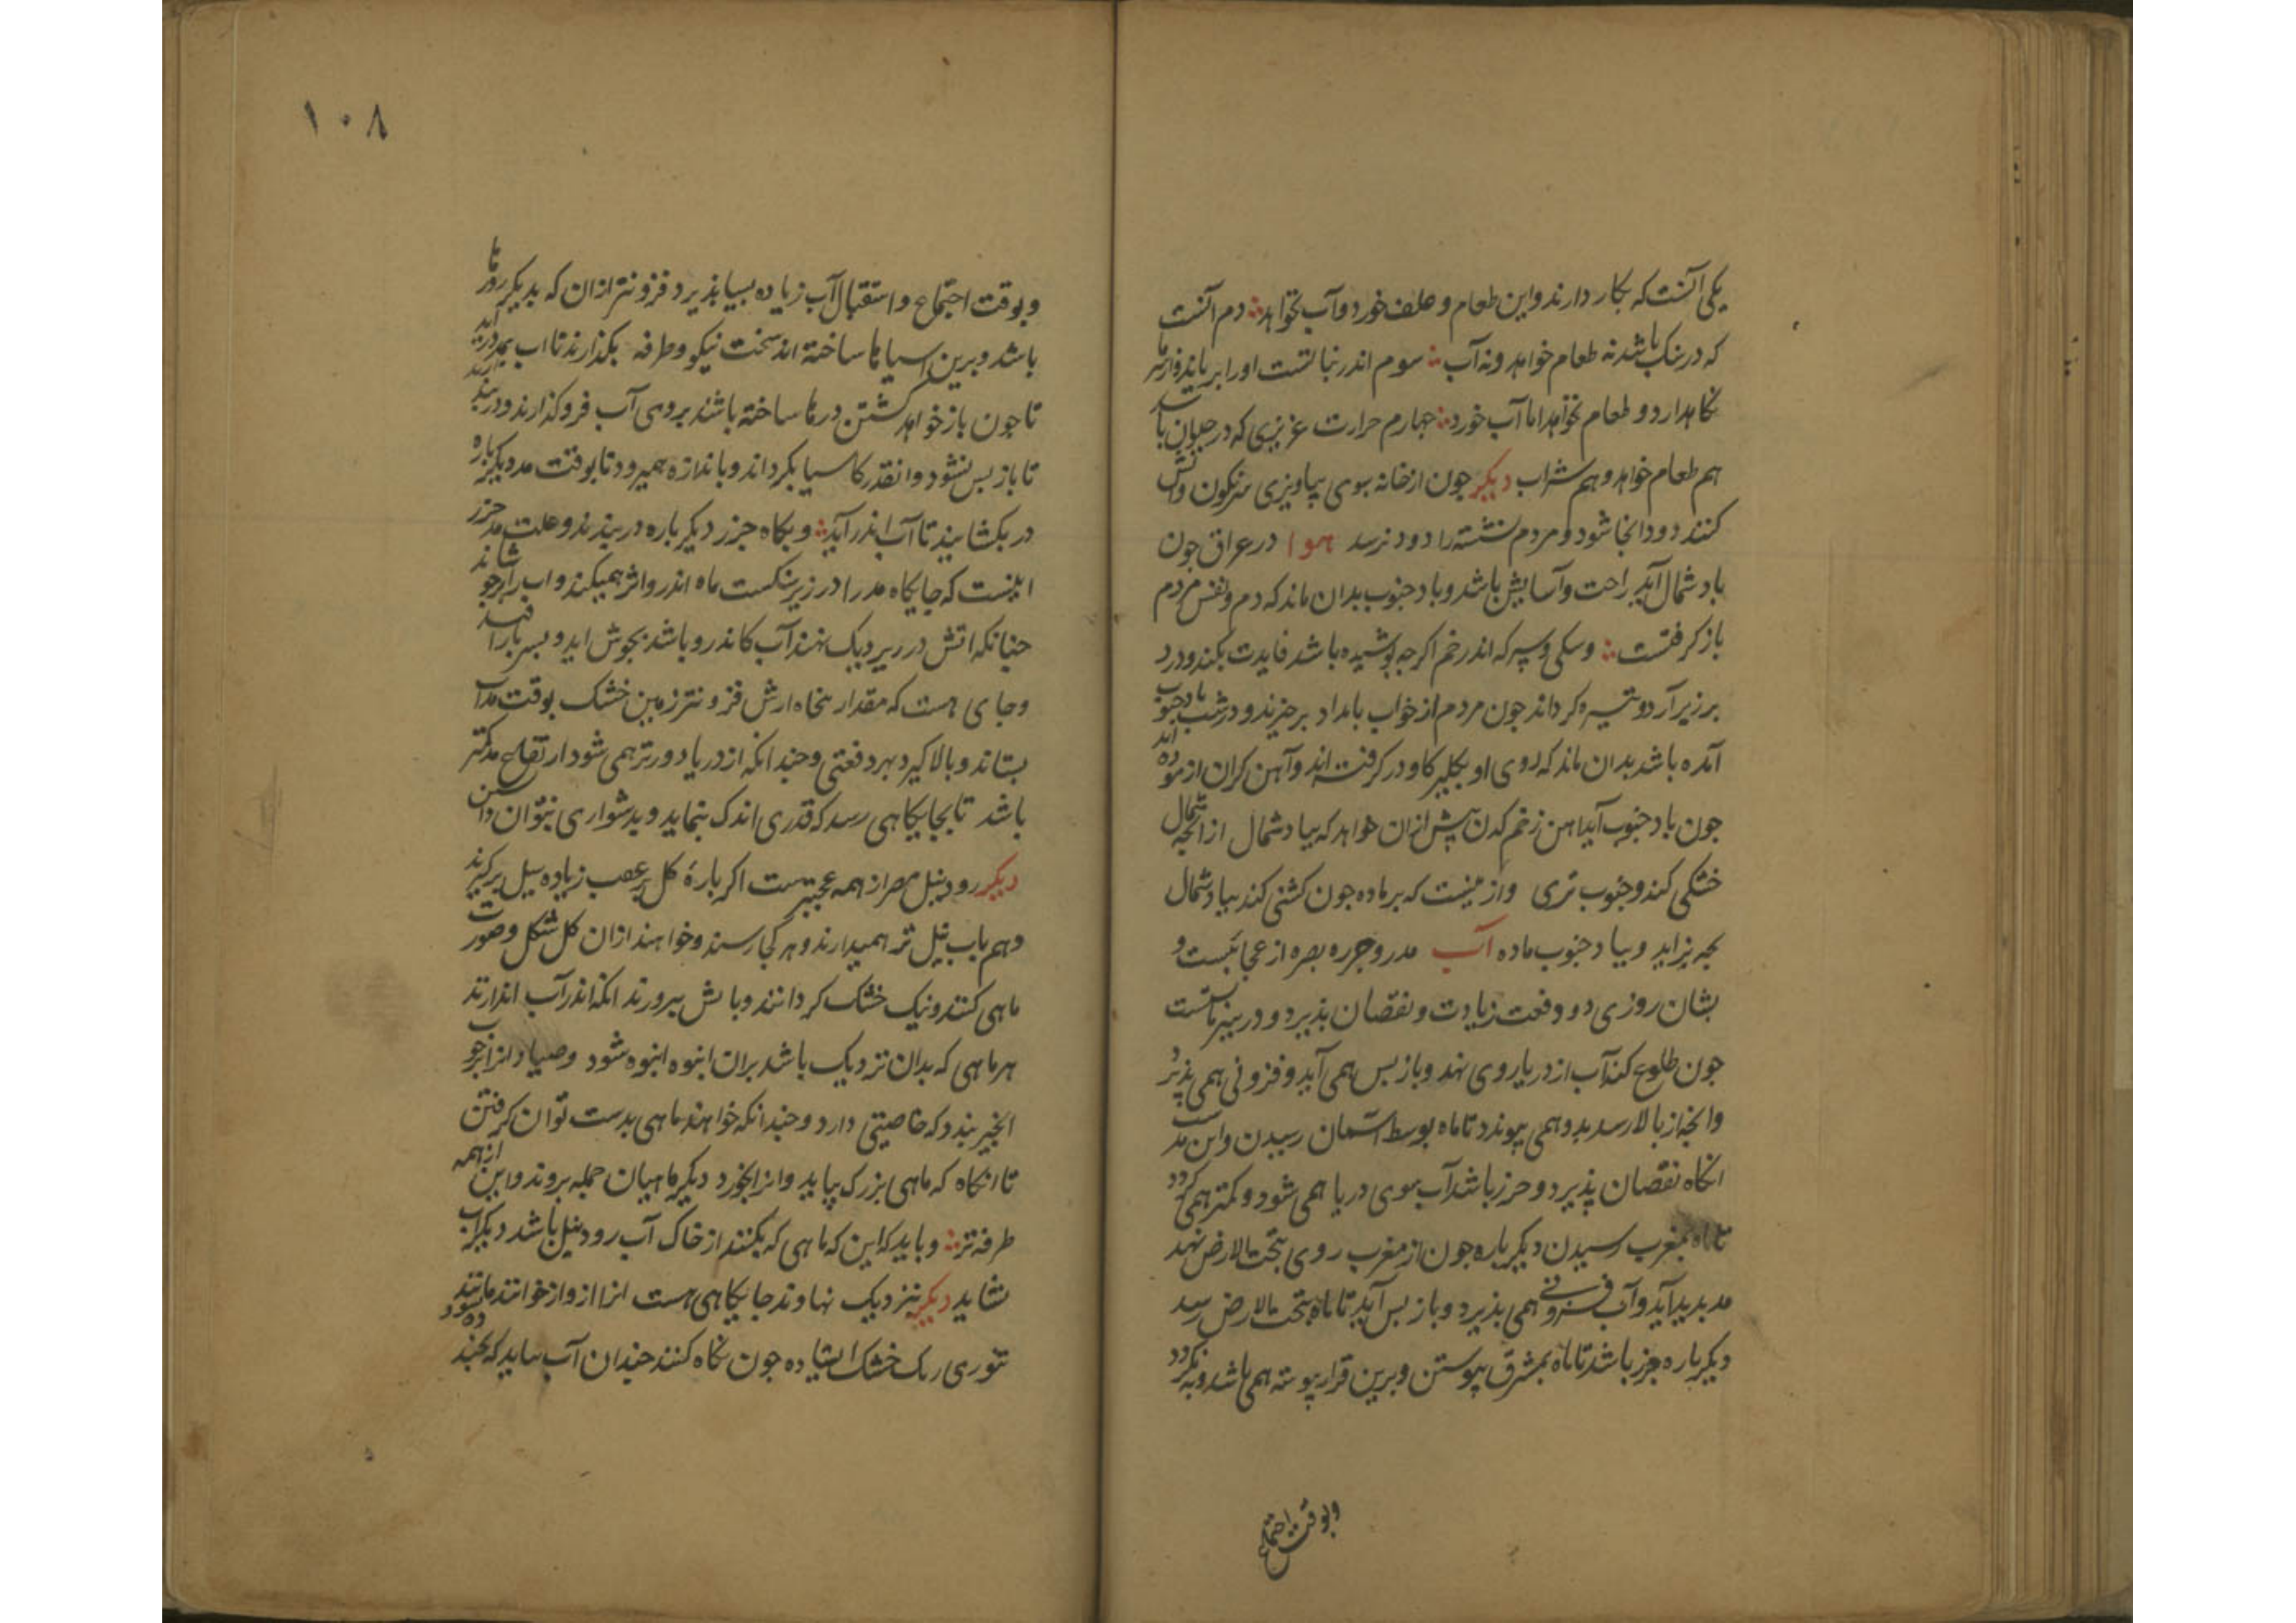 یکی آنست که بکار دارند و این طعام و علف خورد و آب نخواهد دم آنست
که در سنک باشد نه طعام خواهد و نه آب سوم اندر نباتست او را بر
نکاهدارد و طعام نخواهد اما آب خورد جهارم حرارت غریزی که در حیوان باشد
هم طعام خواهد و هم شراب دیکر جون از خانه سوی بیاویزی سرنکون و اتش
کنند دود انجا شود و مردم نشسته را دود نرسد هوا در عراق جون
باد شمال آید راحت و آسایش باشد و باد جنوب بدان ماند که دم و نفس مردم
باز کرفتست و سیکی و سرکه اندر خم اکرجه بوشیده باشد فایدت بکند و درد
بر زیر آرد و تیره کرداند جون مردم از خواب بامداد برخیزند و در شب باد جنوب
آمده باشد بدان ماند که روی او بکلیر کاو در کرفته اند و آهن کران ازموده اند
جون باد جنوب آید اهن زخم کمتر بیش ازان خواهد که بباد شمال از آنجه شمال
خشکی کند و جنوب تری و ازینست که بر ماده جون کشنی کند بباد شمال
بجه نر اید و بباد جنوب ماده آب مد و جزر بصره از عجایبست و
بشان روزی دو دفعت زیادت و نقصان بذیرد و در
جون طلوع کند آب از دریا روی نهد و باز بس همی آید و فزونی همی بذیرد
و انجه از بالا رسد بدو همی بیوندد تا ماه بوسط آسمان رسیدن و این مد است
انکاه نقصان بذیرد و جزر باشد آب سوی دریا همی شود و کمتر همی کردد
تا ماه بمغرب رسیدن دیکر باره جون از مغرب روی بتحت الارض نهد
مد بدید آید و آب فزونی همی بذیرد و باز بس آید تا ماه بتحت الارض رسد
دیکر باره جزر باشد تا ماه بمشرق بیوستن و برین قرار بیوسته همی باشد و بنکردد
و بوقت اجتماع
۱۰۸
و بوقت اجتماع و استقبال آب زیاده بسیا بذیرد فزونتر ازان که بدیکر روزها
باشد و برین اسیاها ساخته اند سخت نیکو و طرفه بکذارند تا اب بمد در آید
تا جون باز خواهد کشتن درها ساخته باشند بر وی آب فرو کذارند و در بندند
تا باز بس نشود و انقدر کاسیا بکرداند و باندازه همی رود تا بوقت مد دیکر باره
در بکشایند تا آب اندر آید و بکاه جزر دیکر باره در ببندند و علت مد جزر
اینست که جایکاه مد را در زیر سنکست ماه اندرو اثر همیکند و اب را بر جوشاند
جنانکه اتش در زیر دیک نهند آب کاندرو باشد بجوش اید و بسر باز افتد
و جای هست که مقدار بنجاه ارش فزونتر زمین خشک بوقت مد آب
بستاند و بالا کیرد بهر دفعتی و جندانکه از دریا دورتر همی شود ارتفاع مد کمتر
باشد تا بجایکاهی رسد که قدری اندک بنماید و بدشواری بتوان دانستن
دیکر رود نیل مصر از همه عجبترست اکر باره کل بر عصب زیاده سیل برکیرند
و هم باب نیل تر همیدارند و هر کجا رسند و خواهند ازان کل شکل و صورت
ماهی کنند و نیک خشک کردانند و باتش ببرورند انکه اندر آب اندازند
هر ماهی که بدان نزدیک باشد بران انبوه انبوه شود و صیاد از انجوب
انجیر ببندد که خاصیتی دارد و جندانکه خواهند ماهی بدست توان کرفتن
تا انکاه که ماهی بزرک بیاید و انرا بخورد دیکر ماهیان جمله بروند و این از همه
طرفه تر و باید که این که ماهی که بکنند از خاک آب رود نیل باشد دیکر آب
نشاید دیکر بنزدیک نهاوند جایکاهی هست انرا ازواز خوانند مانند
تنوری ریک خشک ایستاده جون نکاه کنند جندان آب بیاید که